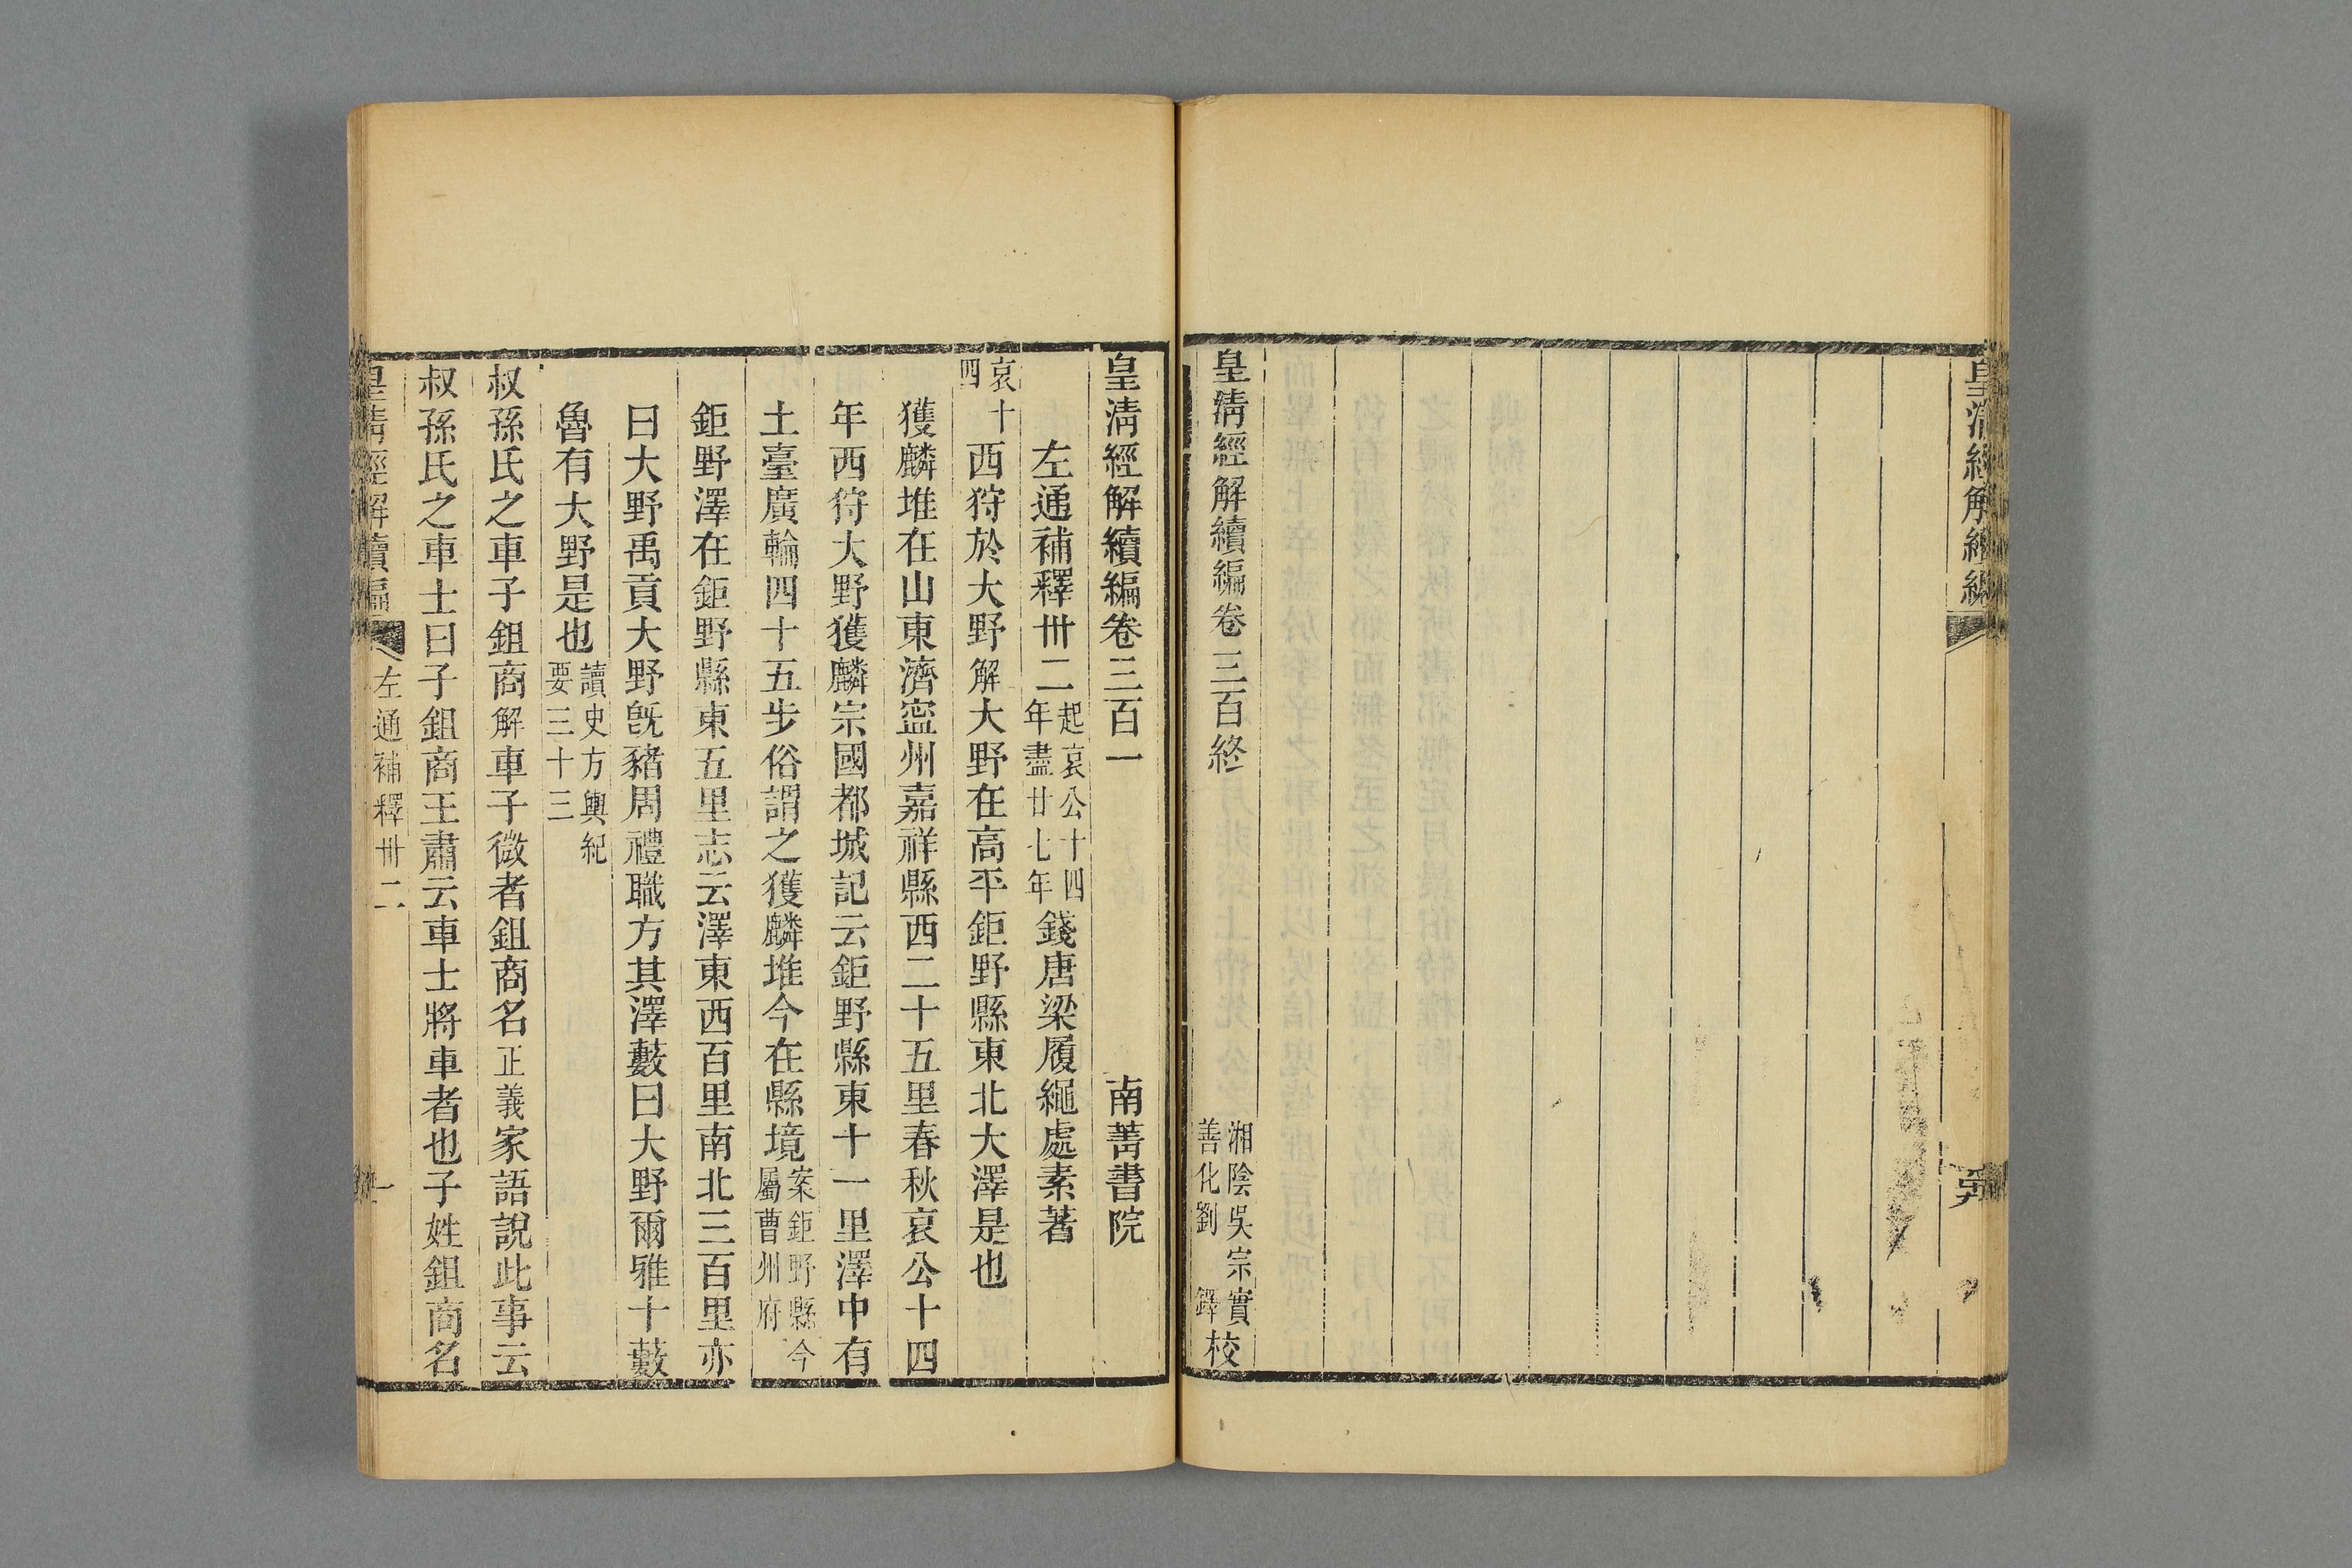 皇清經解續編
皇清經解續編卷三百終
湘陰吳宗實
善化劉 鐸
校
皇清經解續編卷三百一
南菁書院
左通補釋卅二
起哀公十四
年盡廿七年
錢唐梁履繩處素著
哀十
四
西狩於大野解大野在高平鉅野縣東北大澤是也
獲麟堆在山東濟寍州嘉祥縣西二十五里春秋哀公十四
年西狩大野獲麟宗國都城記云鉅野縣東十一里澤中有
土臺廣輪四十五步俗謂之獲麟堆今在縣境
案鉅野縣今
屬曹州府
鉅野澤在鉅野縣東五里志云澤東西百里南北三百里亦
曰大野禹貢大野旣豬周禮職方其澤藪曰大野爾雅十藪
魯有大野是也
讀史方輿紀
要三十三
叔孫氏之車子鉏商解車子微者鉏商名正義家語說此事云
叔孫氏之車士曰子鉏商王肅云車士將車者也子姓鉏商名
皇清經解續編
左通補釋卅二
一